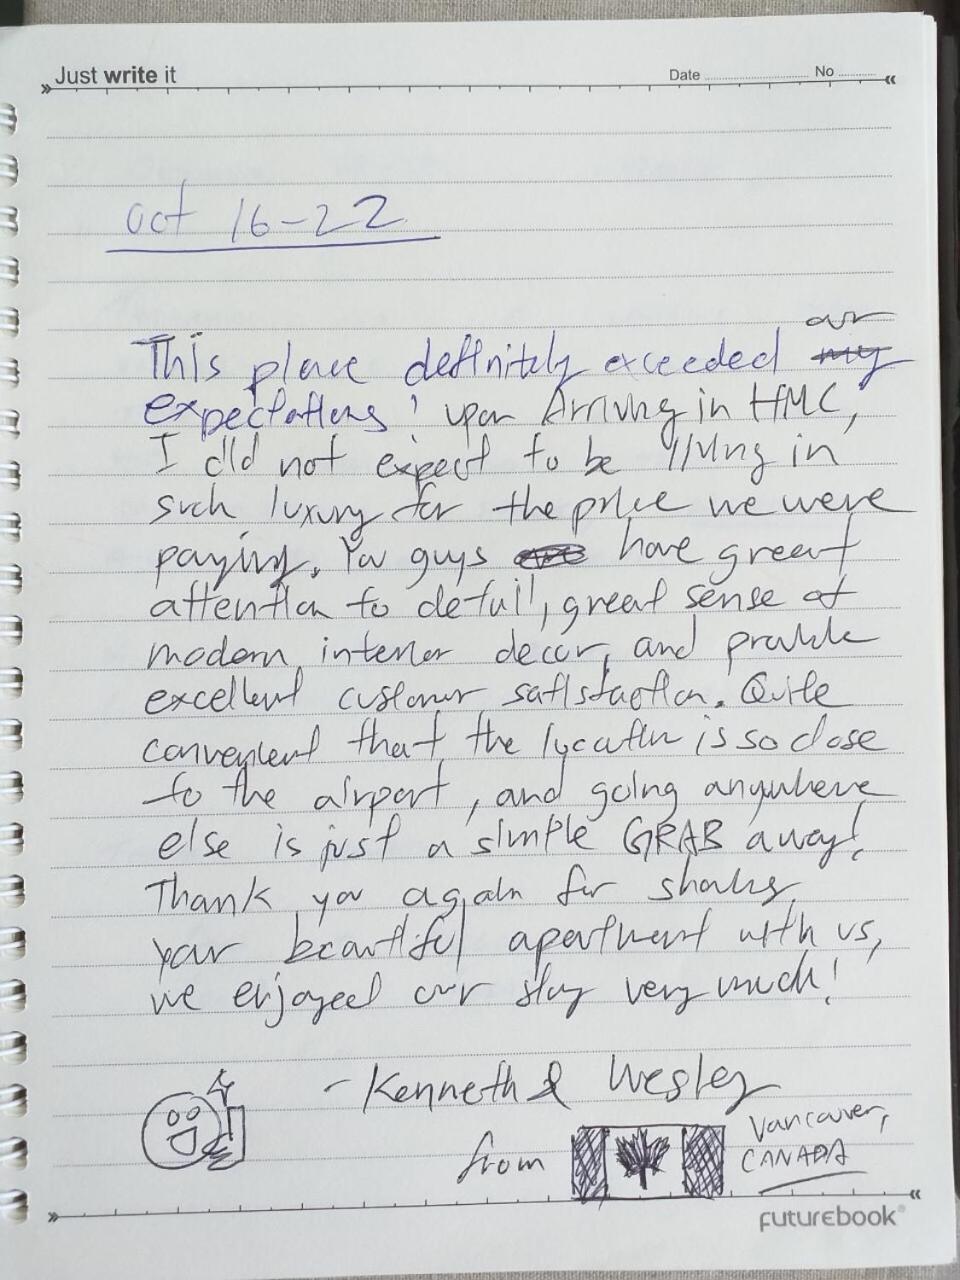 Just write it
Date No
Oct 16-22
our
This place definitely exceeded my
expectations! upon Arriving in HMC,
I did not expect to be living in
such luxury for the price we were
paying. You guys have great
attention to detail, great sense of
modern interior decor, and provide
excellent customer satisfaction. Quite
convenient that the location is so close
to the airport, and going anywhere
else is just a simple GRAB away!
Thank you again for sharing
your beautiful apartment with us,
we enjoyed our stay very much!
- Kenneth & Wesley
from Vancouver,
CANADA
futurebook